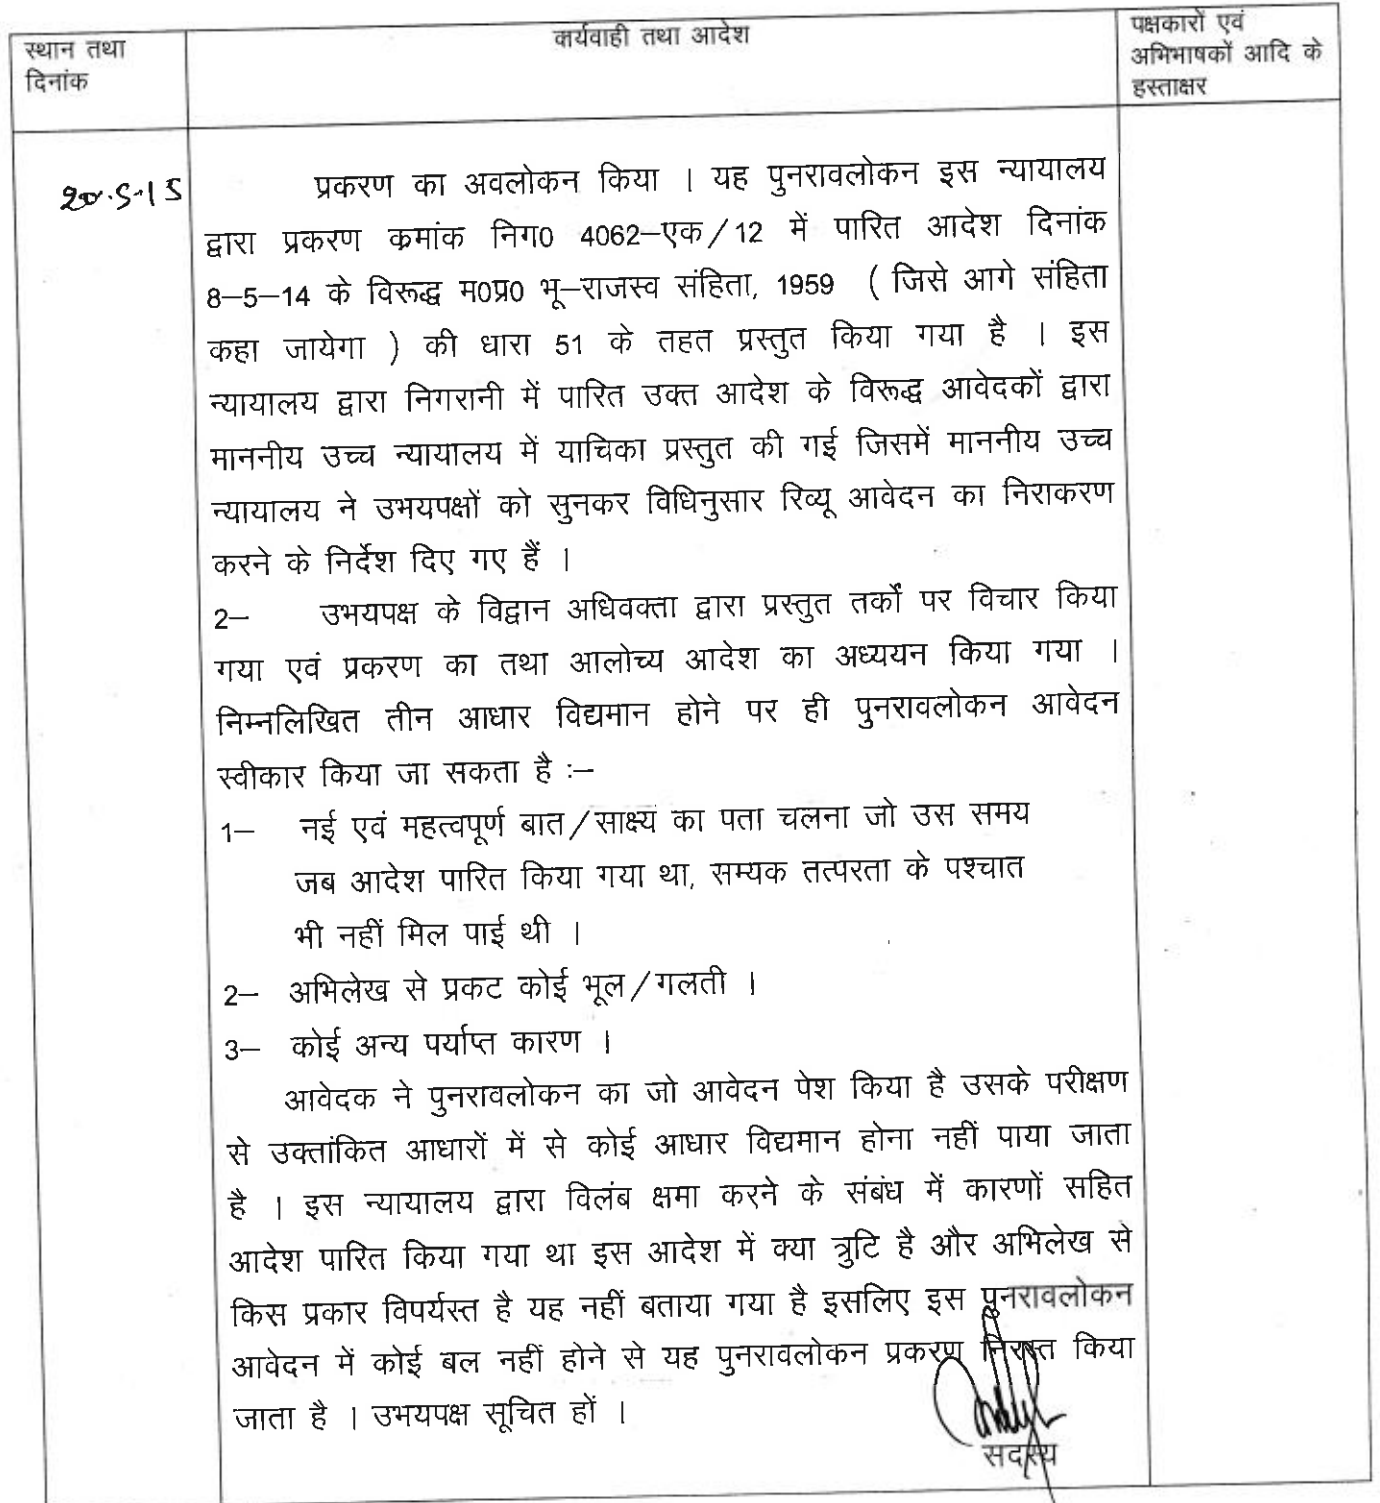 स्थान तथा
दिनांक
कार्यवाही तथा आदेश
पक्षकारों एवं
अभिभाषकों आदि के
हस्ताक्षर
20.5-15
प्रकरण का अवलोकन किया । यह पुनरावलोकन इस न्यायालय
द्वारा प्रकरण क्रमांक निग0 4062–एक/12 में पारित आदेश दिनांक
8–5–14 के विरूद्ध म0प्र0 भू–राजस्व संहिता, 1959 ( जिसे आगे संहिता
कहा जायेगा ) की धारा 51 के तहत प्रस्तुत किया गया है । इस
न्यायालय द्वारा निगरानी में पारित उक्त आदेश के विरूद्ध आवेदकों द्वारा
माननीय उच्च न्यायालय में याचिका प्रस्तुत की गई जिसमें माननीय उच्च
न्यायालय ने उभयपक्षों को सुनकर विधिनुसार रिव्यू आवेदन का निराकरण
करने के निर्देश दिए गए हैं ।
2– उभयपक्ष के विद्वान अधिवक्ता द्वारा प्रस्तुत तर्कों पर विचार किया
गया एवं प्रकरण का तथा आलोच्य आदेश का अध्ययन किया गया ।
निम्नलिखित तीन आधार विद्यमान होने पर ही पुनरावलोकन आवेदन
स्वीकार किया जा सकता है :–
1– नई एवं महत्वपूर्ण बात/साक्ष्य का पता चलना जो उस समय
जब आदेश पारित किया गया था, सम्यक तत्परता के पश्चात
भी नहीं मिल पाई थी ।
2– अभिलेख से प्रकट कोई भूल/गलती ।
3– कोई अन्य पर्याप्त कारण ।
आवेदक ने पुनरावलोकन का जो आवेदन पेश किया है उसके परीक्षण
से उक्तांकित आधारों में से कोई आधार विद्यमान होना नहीं पाया जाता
है । इस न्यायालय द्वारा विलंब क्षमा करने के संबंध में कारणों सहित
आदेश पारित किया गया था इस आदेश में क्या त्रुटि है और अभिलेख से
किस प्रकार विपर्यस्त है यह नहीं बताया गया है इसलिए इस पुनरावलोकन
आवेदन में कोई बल नहीं होने से यह पुनरावलोकन प्रकरण निरस्त किया
जाता है । उभयपक्ष सूचित हों ।
सदस्य